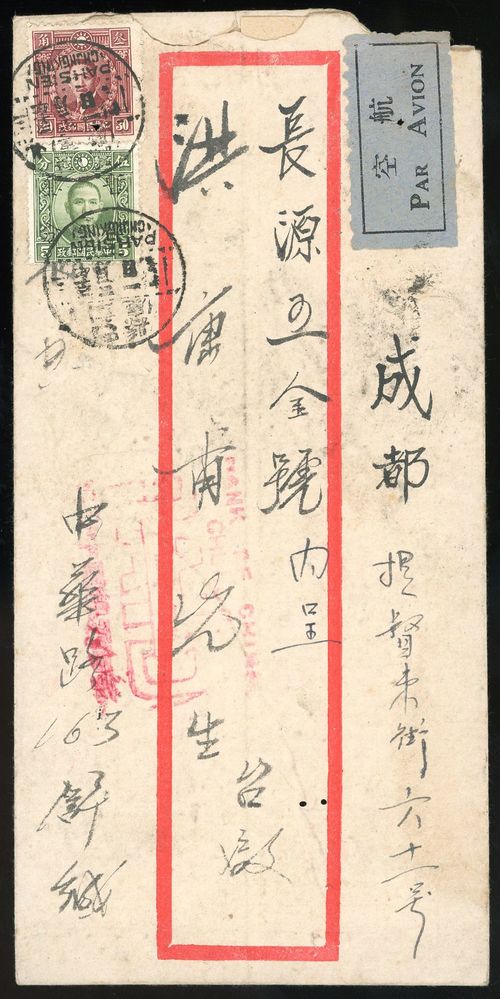 航空
PAR AVION
成都 提督東街六十一号
長源五金號內呈
洪康甫先生 台啟
中華路163 舒緘
BANK OF CHINA
30
5
PAHSIEN
(CHUNGKING)
PAHSIEN
(CHUNGKING)